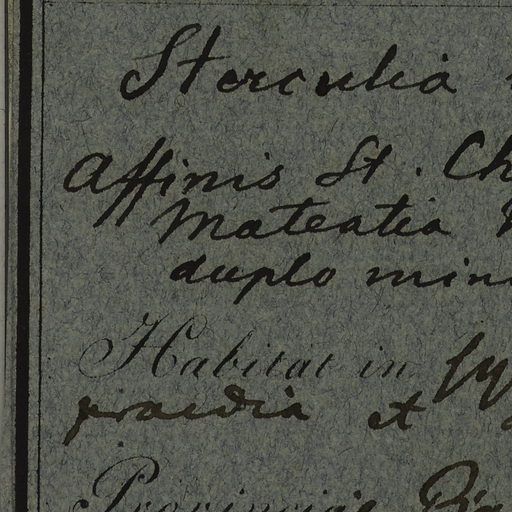 Sterculia
Affinis St. Ch
Mateatia
duplo min
Habitat in Sy
praedia et
Provinciis Pia